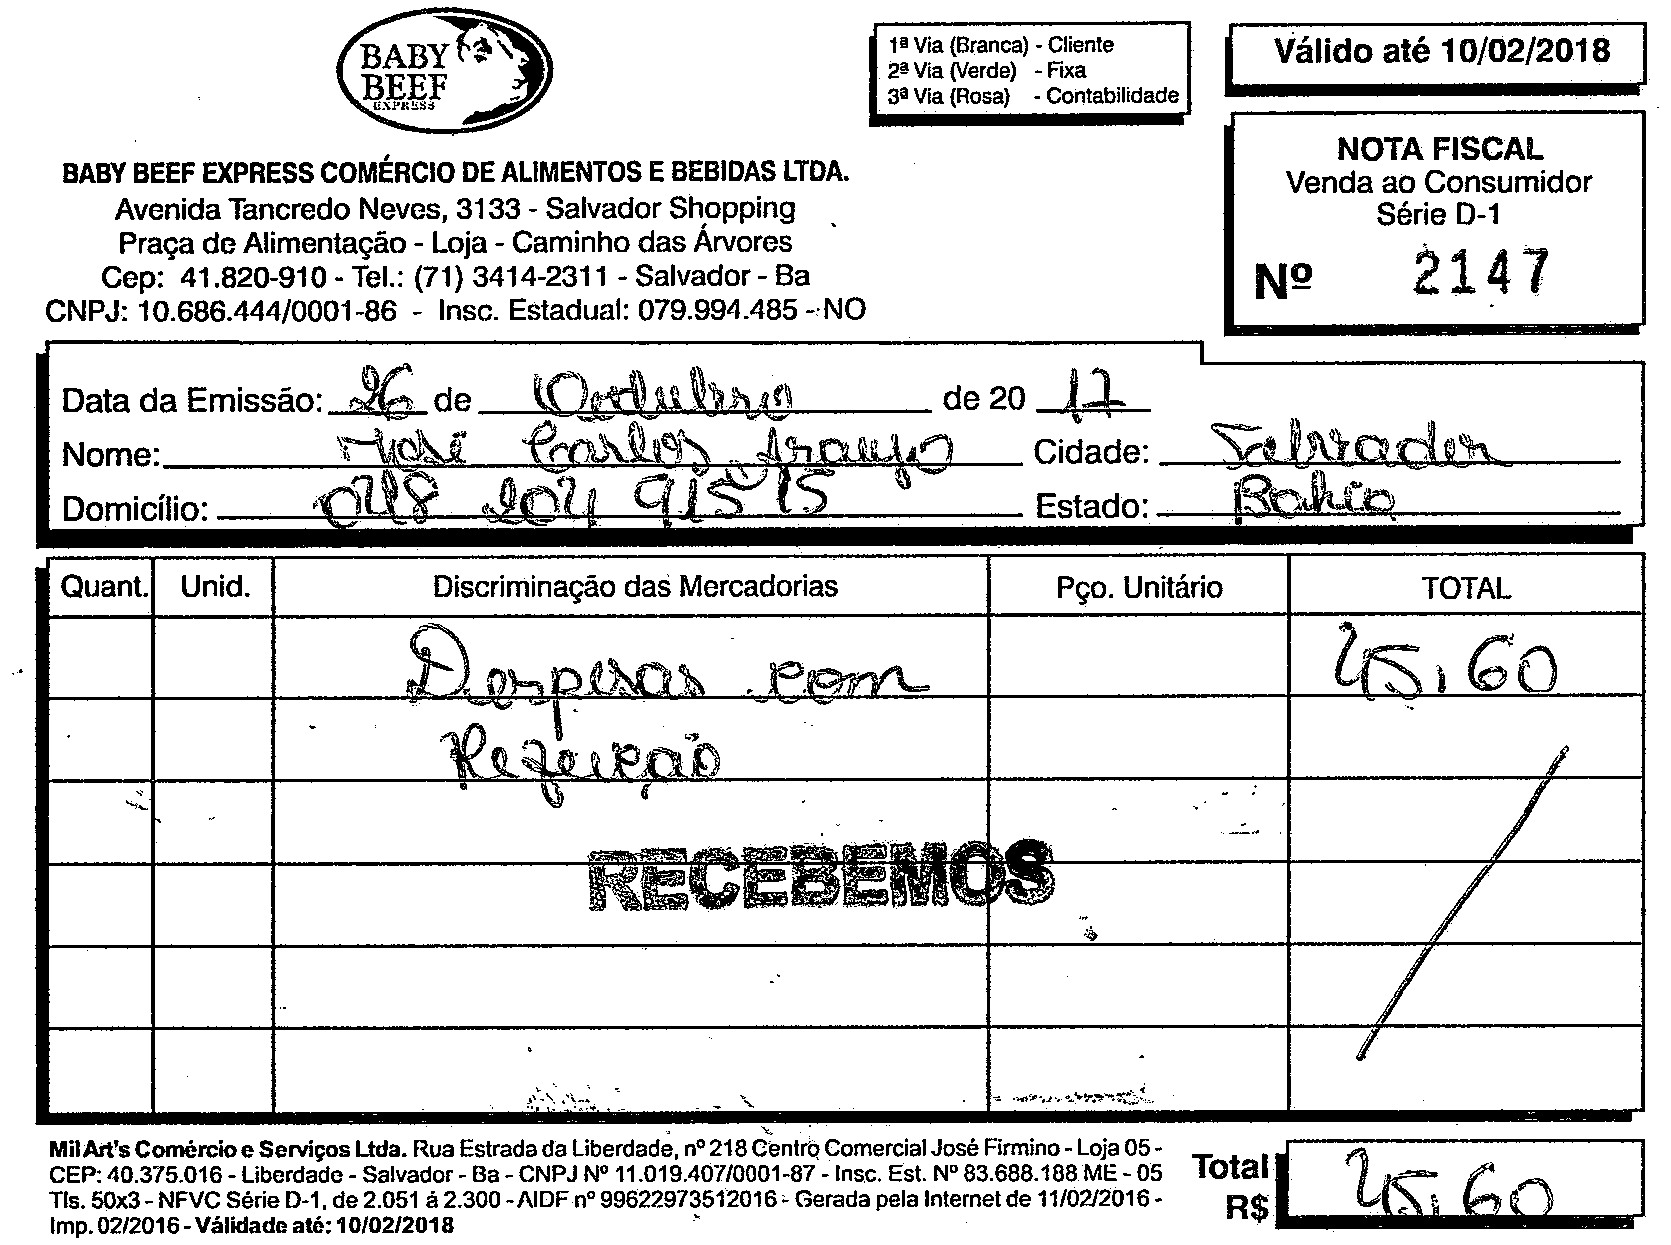 BABY
BEEF
EXPRESS
1ª Via (Branca) - Cliente
2ª Via (Verde) - Fixa
3ª Via (Rosa) - Contabilidade
Válido até 10/02/2018
BABY BEEF EXPRESS COMÉRCIO DE ALIMENTOS E BEBIDAS LTDA.
Avenida Tancredo Neves, 3133 - Salvador Shopping
Praça de Alimentação - Loja - Caminho das Árvores
Cep: 41.820-910 - Tel.: (71) 3414-2311 - Salvador - Ba
CNPJ: 10.686.444/0001-86 - Insc. Estadual: 079.994.485 - NO
NOTA FISCAL
Venda ao Consumidor
Série D-1
Nº 2147
Data da Emissão: 26 de Outubro de 20 17
Nome: José Carlos Araujo Cidade: Salvador
Domicílio: 048 204 915 15 Estado: Bahia
Quant. Unid. Discriminação das Mercadorias Pço. Unitário TOTAL
Despesas com 45,60
Refeição
RECEBEMOS
Mil Art's Comércio e Serviços Ltda. Rua Estrada da Liberdade, nº 218 Centro Comercial José Firmino - Loja 05 -
CEP: 40.375.016 - Liberdade - Salvador - Ba - CNPJ Nº 11.019.407/0001-87 - Insc. Est. Nº 83.688.188 ME - 05
Tls. 50x3 - NFVC Série D-1, de 2.051 á 2.300 - AIDF nº 99622973512016 - Gerada pela Internet de 11/02/2016 -
Imp. 02/2016 - Válidade até: 10/02/2018
Total
R$ 45,60